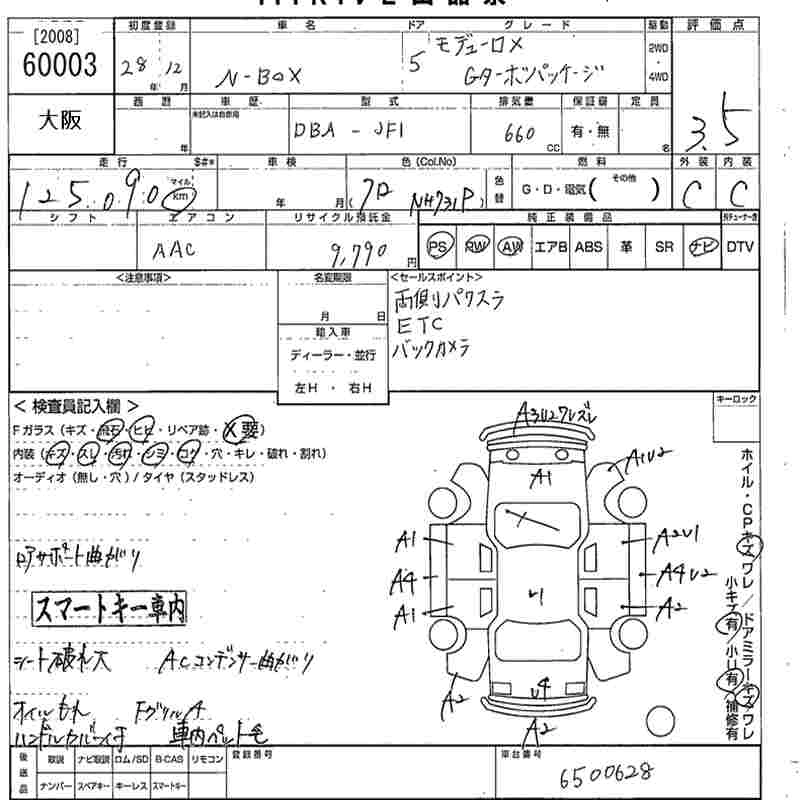 [2008]
60003
初度登録 車名 ドア グレード 駆動 評価点
28年 12月 N-BOX 5 モデューロX
Gターボパッケージ
2WD
・
4WD
3.5
大阪
車歴 型式 排気量 保証書 定員
未記入は自家用
年 DBA - JF1 660 CC 有・無 名
走行 $#* 車検 色(Col.No) 燃料 外装 内装
125090 マイル km 年 月 ( NH731P ) 色替 G・D・電気( その他 ) C C
シフト エアコン リサイクル預託金 純正装備品
AAC 9,790円 PS PW AW エアB ABS 革 SR ナビ DTV
<注意事項> 名変期限 <セールスポイント>
月 日
両側りパワスラ
輸入車
ETC
ディーラー・並行
バックカメラ
左H・右H
<検査員記入欄> キーロック
Fガラス(キズ・飛石・ヒビ・リペア跡・X要)
内装(キズ・スレ・汚れ・シミ・コゲ・穴・キレ・破れ・割れ)
オーディオ(無し・穴)/タイヤ(スタッドレス)
A3U2ワレズレ
A1
A1U2
A1
A2U1
A4
A4U2
A1
A2
A2
U4
A2
ホイル・CPキズワレ/ドアミラーキズワレ
小キズ有/小U有/補修有
コアサポート曲がり
スマートキー車内
シート破れ大 ACコンデンサー曲がり
オイルもれ FグリルA
車内ペット毛
後送品 取説 ナビ取説 ロム/SD B-CAS リモコン 登録番号 車台番号
ナンバー スペアキー キーレス スマートキー 6500628